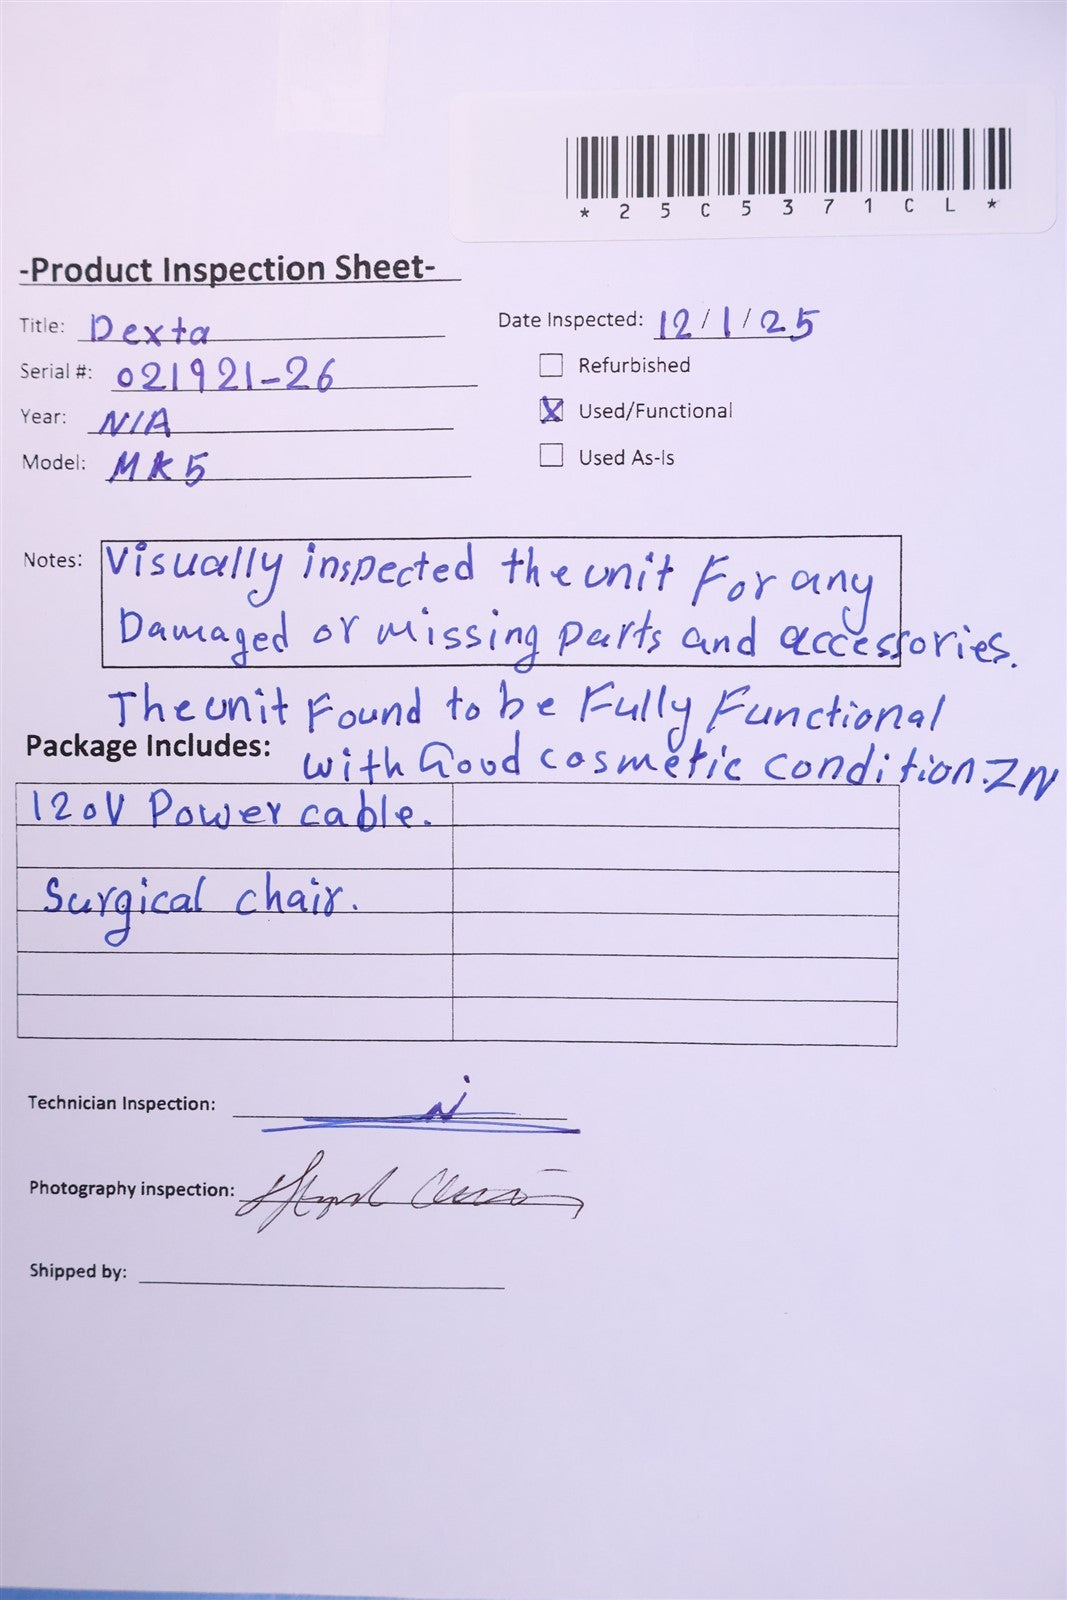 * 2 5 C 5 3 7 1 C L *
-Product Inspection Sheet-
Title: Dexta
Date Inspected: 12/1/25
Serial #: 021921-26
Refurbished
Year: N/A
X Used/Functional
Model: MK5
Used As-Is
Notes: Visually inspected the unit For any
Damaged or missing parts and accessories.
The unit Found to be Fully Functional
Package Includes: with Good cosmetic condition. ZN
120V Power cable.
Surgical chair.
Technician Inspection:
Photography inspection:
Shipped by: